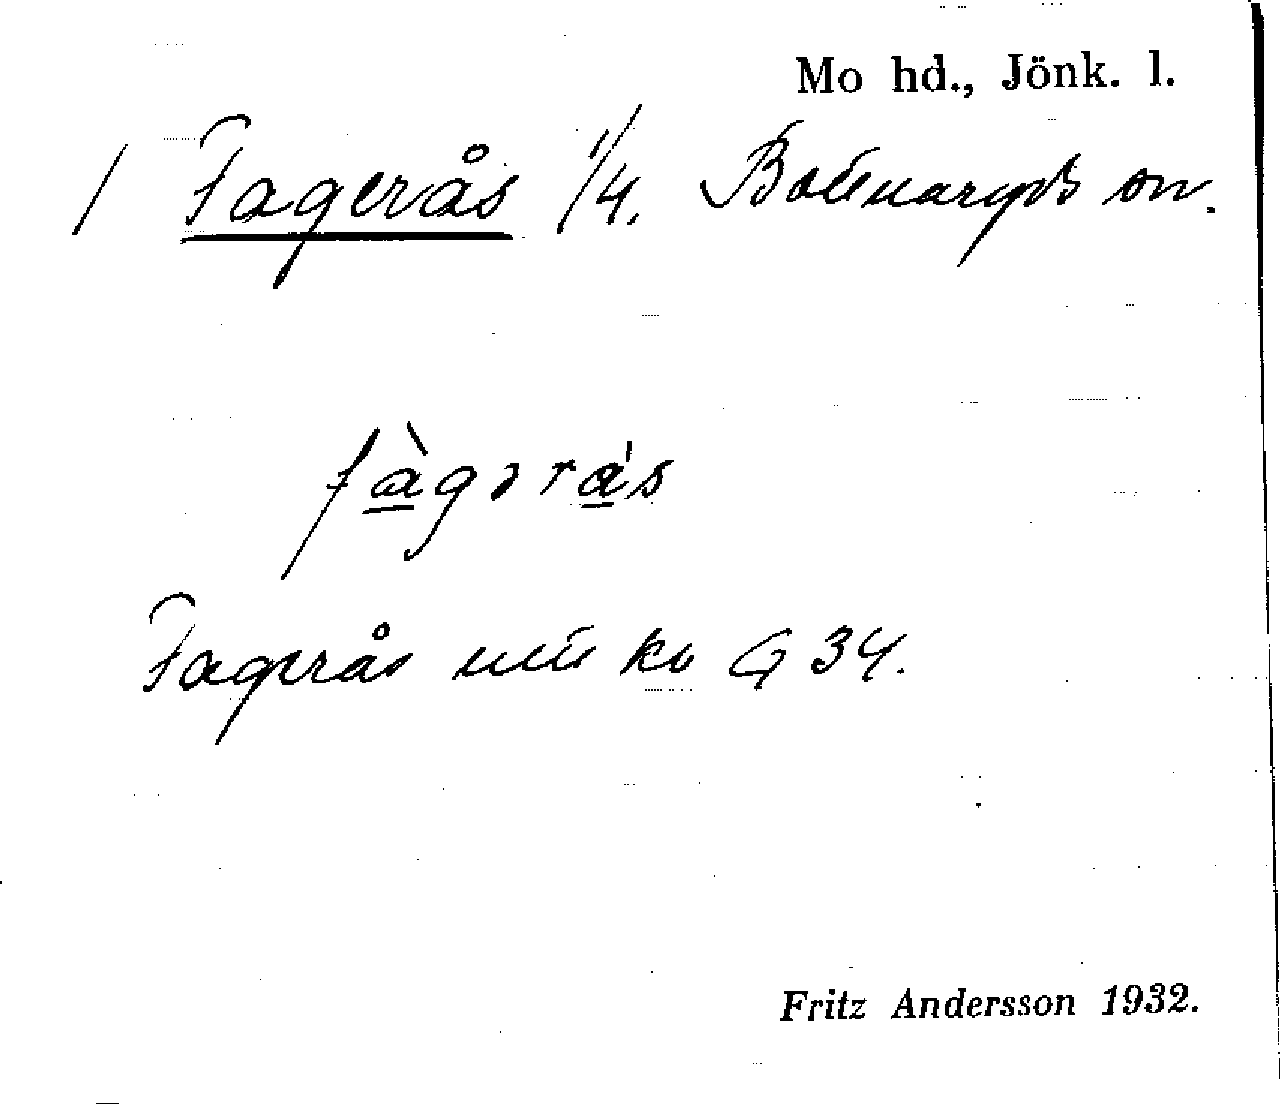 Mo hd., Jönk. l.
/ Fagerås 1/4. Bottnaryds sn.
fàgərás
Fagerås uti kb G 34.
Fritz Andersson 1932.